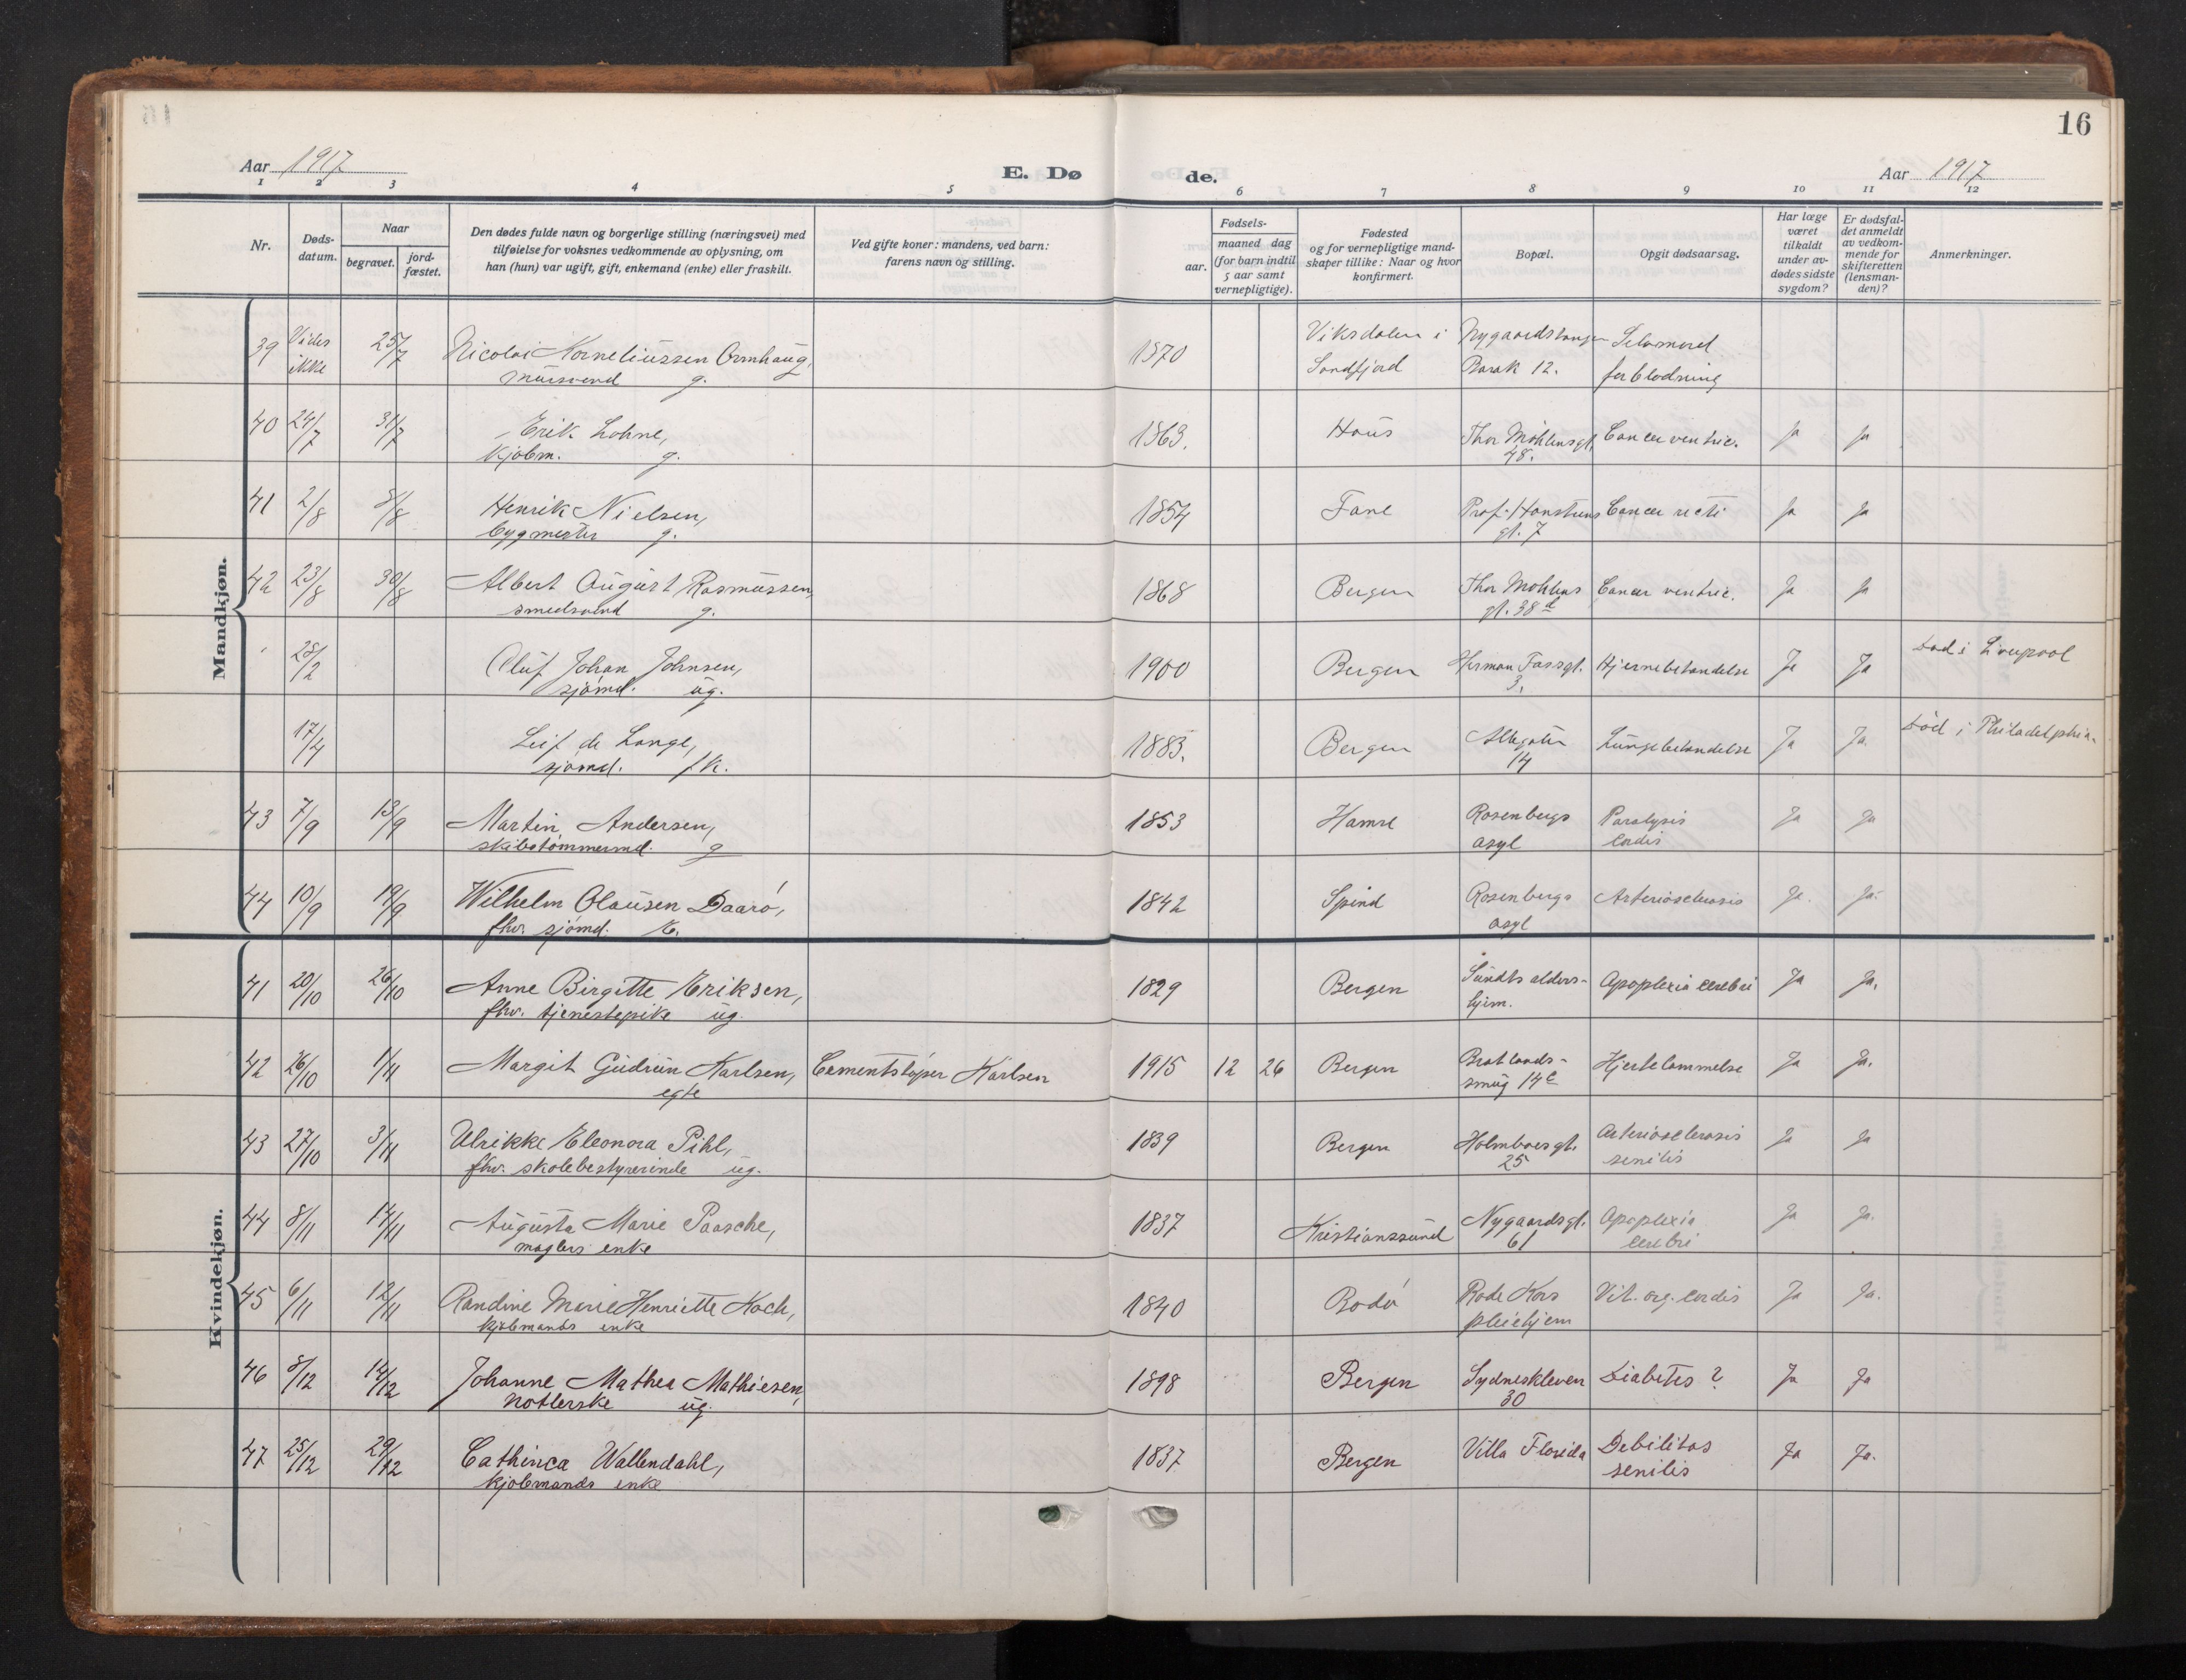 16
Aar 1917
E. Dø
de.
Aar 1917
1 2 3 4 5 6 7 8 9 10 11 12
Nr.
Døds-
datum.
Naar
begravet.
jord-
fæstet.
Den dødes fulde navn og borgerlige stilling (næringsvei) med
tilføielse for voksnes vedkommende av oplysning, om
han (hun) var ugift, gift, enkemand (enke) eller fraskilt.
Ved gifte koner: mandens, ved barn:
farens navn og stilling.
Fødsels-
aar.
maaned dag
(for barn indtil
5 aar samt
vernepligtige).
Fødested
og for vernepligtige mand-
skaper tillike: Naar og hvor
konfirmert.
Bopæl.
Opgit dødsaarsag.
Har læge
været
tilkaldt
under av-
dødes sidste
sygdom?
Er dødsfal-
det anmeldt
av vedkom-
mende for
skifteretten
(lensman-
den)?
Anmerkninger.
Mandkjøn.
39 Vides 25/7 Nicolai Korneliussen Ormhaug, 1870 Viksdalen i Nygaardstangen Selvmord
ikke mursvend g. Sondfjord Barak 12. forblodning
40 24/7 31/7 Erik Lohne, 1863. Haus Thor Møhlensgt. Cancer ventric. ja ja
kjøbm. g. 48.
41 2/8 8/8 Henrik Nielsen, 1854 Fane Prof. Hansteens Cancer recti Ja Ja
bygmester g. gt. 7
42 23/8 30/8 Albert August Rasmussen, 1868 Bergen Thor Møhlens Cancer ventric. Ja Ja
smedsvend g. gt. 38 d
28/2 Oluf Johan Johnsen, 1900 Bergen Herman Fossgt. Hjernebetændelse Ja Ja død i Liverpool
sjømd. ug. 3.
17/4 Leif de Lange, 1883. Bergen Allegaten Lungebetændelse Ja Ja død i Philadelphia.
sjømd. fk. 14
43 7/9 13/9 Martin Andersen, 1853 Hamre Rosenbergs Paralysis Ja Ja
skibstømmermd. g asyl cordis
44 10/9 19/9 Wilhelm Olausen Daarø, 1842 Spind Rosenbergs Arteriosclerosis Ja. Ja.
fhv. sjømd. E. asyl
Kvindekjøn.
41 20/10 26/10 Anne Birgitte Eriksen, 1829 Bergen Sundts alders- Apoplexia cerebri Ja Ja.
fhv. tjenestepike ug. hjem.
42 26/10 1/11 Margit Gudrun Karlsen, Cementstøper Karlsen 1915 12 26 Bergen Bratlands- Hjertelammelse Ja Ja.
egte smug 14 c
43 27/10 3/11 Ulrikke Eleonora Pihl, 1839 Bergen Holmboesgt. Arteriosclerosis Ja Ja
fhv. skolebestyrerinde ug. 25 senilis
44 8/11 14/11 Augusta Marie Paasche, 1837 Kristianssund Nygaardsgt. Apoplexia Ja Ja.
mæglers enke 61 cerebri
45 6/11 12/11 Randine Marie Henriette Koch, 1840 Bodø Røde Kors Vit. org. cordis Ja Ja.
kjøbmands enke pleiehjem
46 8/12 14/12 Johanne Mathea Mathiesen, 1898 Bergen Sydneskleven Diabetes? Ja Ja
notlerske ug. 30
47 25/12 29/12 Cathinca Wallendahl, 1837 Bergen Villa Florida Debilitas Ja Ja.
kjøbmands enke senilis